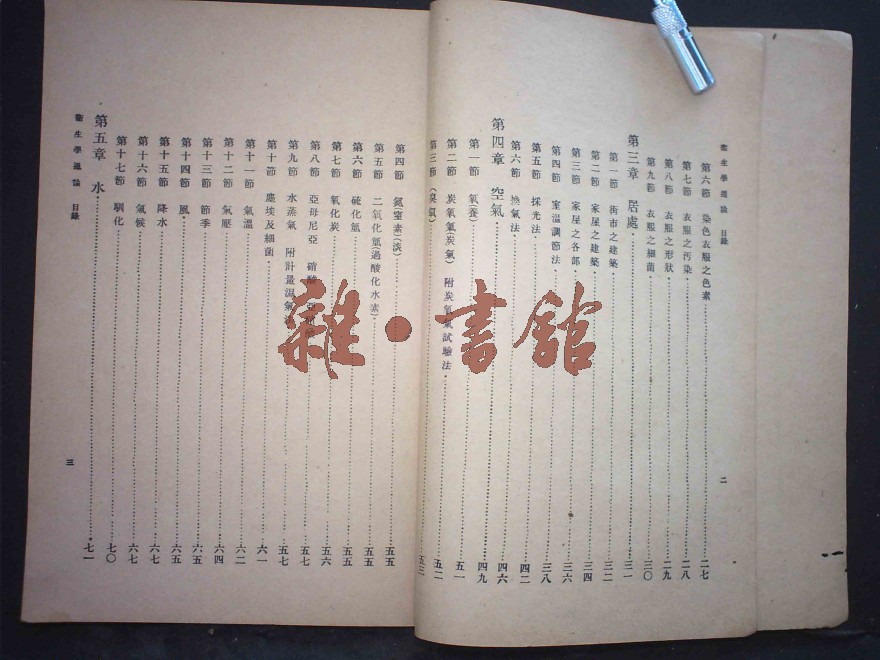 衞生學通論 目錄
二
第六節 染色衣服之色素 二七
第七節 衣服之汚染 二八
第八節 衣服之形狀 二九
第九節 衣服之細菌 三〇
第三章 居處 三一
第一節 街市之建築 三二
第二節 家屋之建築 三四
第三節 家屋之各部 三六
第四節 室溫調節法 三八
第五節 採光法 四二
第六節 換氣法 四六
第四章 空氣 四九
第一節 氧(養) 五一
第二節 炭氧氣(炭氣) 附炭氧氣試驗法 五二
第三節 (臭氣) 五三
第四節 氮窒素(淡) 五五
第五節 二氧化氫(過酸化水素) 五五
第六節 硫化氫 五五
第七節 氧化炭 五六
第八節 亞母尼亞 硝酸 五七
第九節 水蒸氣 附計量濕氣 五七
第十節 塵埃及細菌 六一
第十一節 氣溫 六二
第十二節 氣壓 六四
第十三節 節季 六五
第十四節 風 六五
第十五節 降水 六七
第十六節 氣候 六七
第十七節 馴化 七〇
第五章 水 七一
衞生學通論 目錄
三
雜·書館